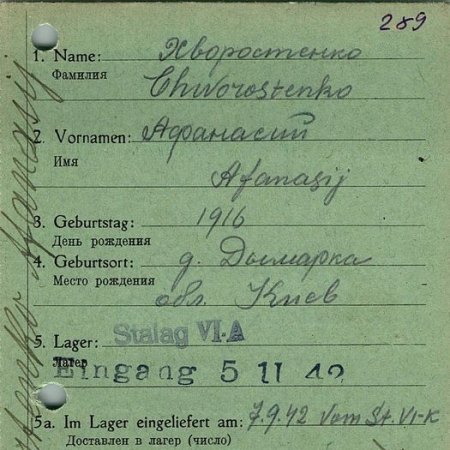 289
1. Name: Хворостенко
Фамилия Chworostenko
2. Vornamen: Афанасий
Имя
Afanasij
3. Geburtstag: 1916
День рождения
4. Geburtsort: д. Дымарка
Место рождения
обл. Киев
5. Lager: Stalag VI-A
Лагер
Eingang 5 11 42
5a. Im Lager eingeliefert am: 7.9.42 vom St. VI-K
Доставлен в лагер (число)